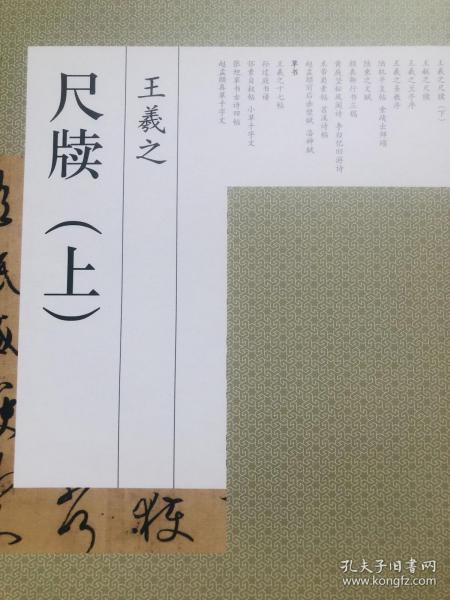 王羲之尺牍（下）
王献之尺牍
王羲之兰亭序
王羲之圣教序
陆机平复帖 索靖出师颂
陆柬之文赋
颜真卿行书三稿
黄庭坚松风阁诗 李白忆旧游诗
米芾蜀素帖 苕溪诗帖
赵孟頫前后赤壁赋 洛神赋
草书
王羲之十七帖
孙过庭书谱
怀素自叙帖 小草千字文
张旭草书古诗四帖
赵孟頫真草千字文
王羲之
尺牍（上）
孔夫子旧书网
www.kongfz.com